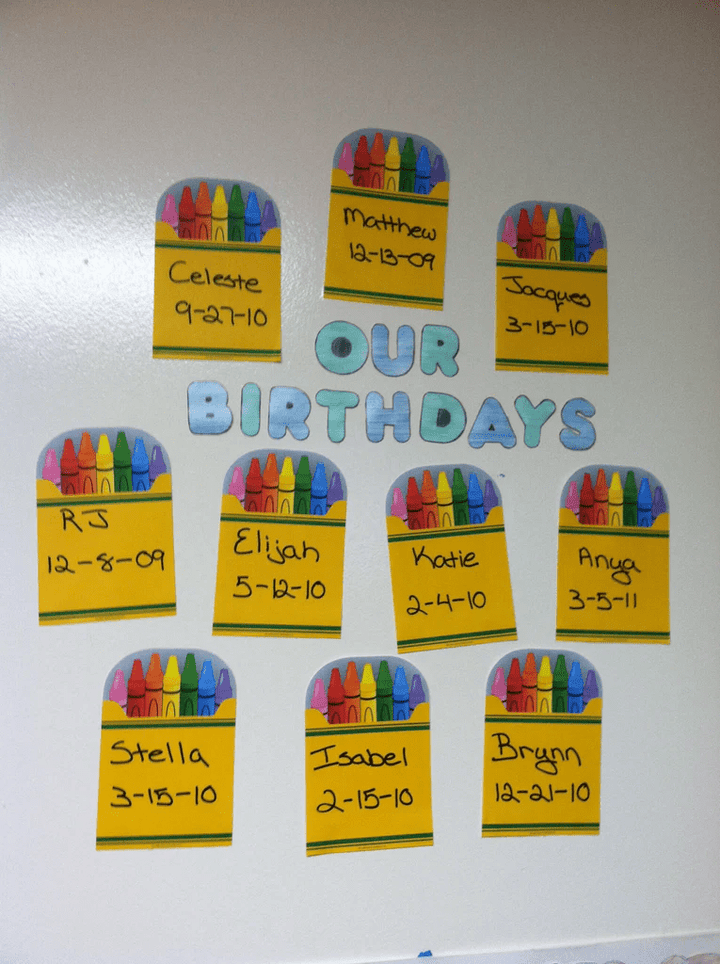 Matthew
12-13-09
Celeste
9-27-10
Jacques
3-15-10
OUR
BIRTHDAYS
RJ
12-8-09
Elijah
5-12-10
Katie
2-4-10
Anya
3-5-11
Stella
3-15-10
Isabel
2-15-10
Brynn
12-21-10